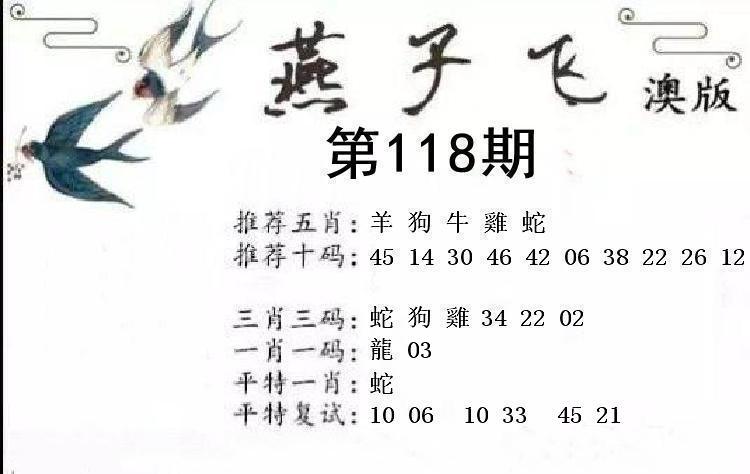 燕子飞 澳版
第118期
推荐五肖: 羊 狗 牛 雞 蛇
推荐十码: 45 14 30 46 42 06 38 22 26 12
三肖三码: 蛇 狗 雞 34 22 02
一肖一码: 龍 03
平特一肖: 蛇
平特复试: 10 06 10 33 45 21